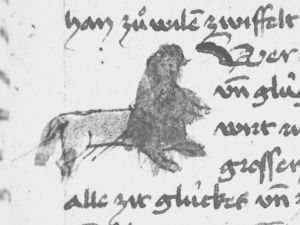 han zůwilē zwiffelt
Wer
vn̄ glu̍
wirt
grosser
alle zit glu̍kes vn̄